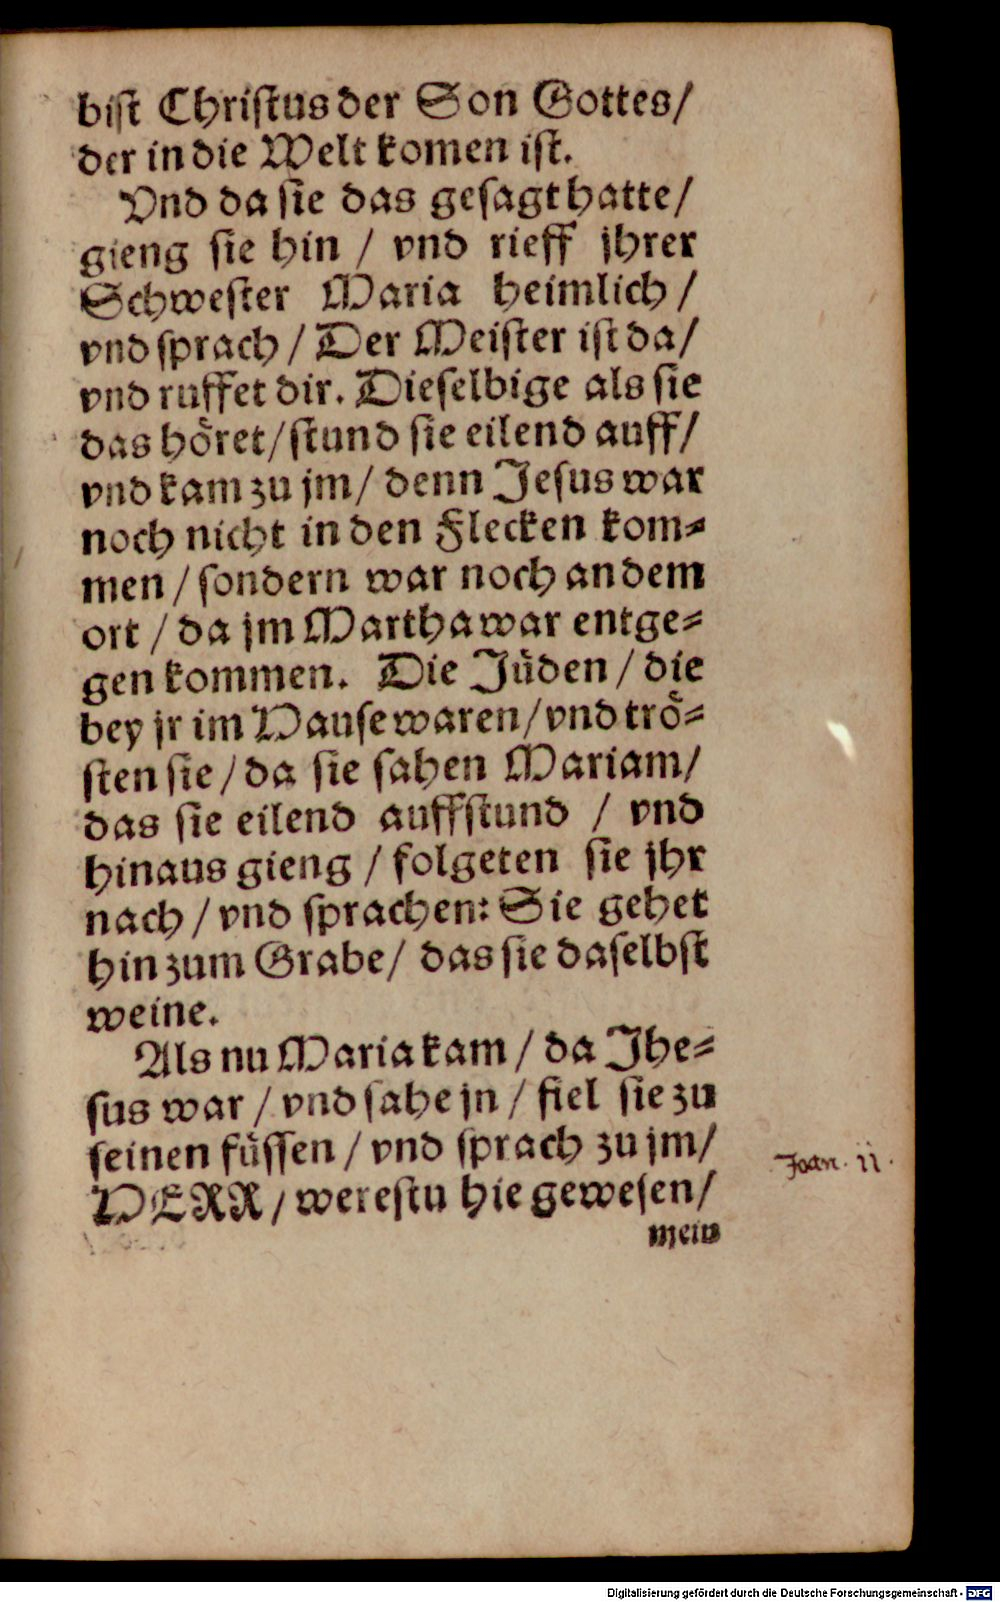 biſt Chriſtus der Son Gottes/
der in die Welt komen iſt.
Vnd da ſie das geſagt hatte/
gieng ſie hin / vnd rieff jhrer
Schweſter Maria heimlich /
vnd ſprach / Der Meiſter iſt da/
vnd ruffet dir. Dieſelbige als ſie
das hoͤret/ ſtund ſie eilend auff/
vnd kam zu jm/ denn Jeſus war
noch nicht in den Flecken kom⸗
men / ſondern war noch an dem
ort / da jm Martha war entge⸗
gen kommen. Die Juͤden / die
bey jr im Hauſe waren/ vnd troͤ⸗
ſten ſie / da ſie ſahen Mariam/
das ſie eilend auffſtund / vnd
hinaus gieng / folgeten ſie jhr
nach / vnd ſprachen: Sie gehet
hin zum Grabe/ das ſie daſelbſt
weine.
Als nu Maria kam / da Jhe⸗
ſus war / vnd ſahe jn / fiel ſie zu
ſeinen fuͤſſen / vnd ſprach zu jm/
HERR / wereſtu hie geweſen/
mein
Joan. 11.
Digitalisierung gefördert durch die Deutsche Forschungsgemeinschaft - DFG